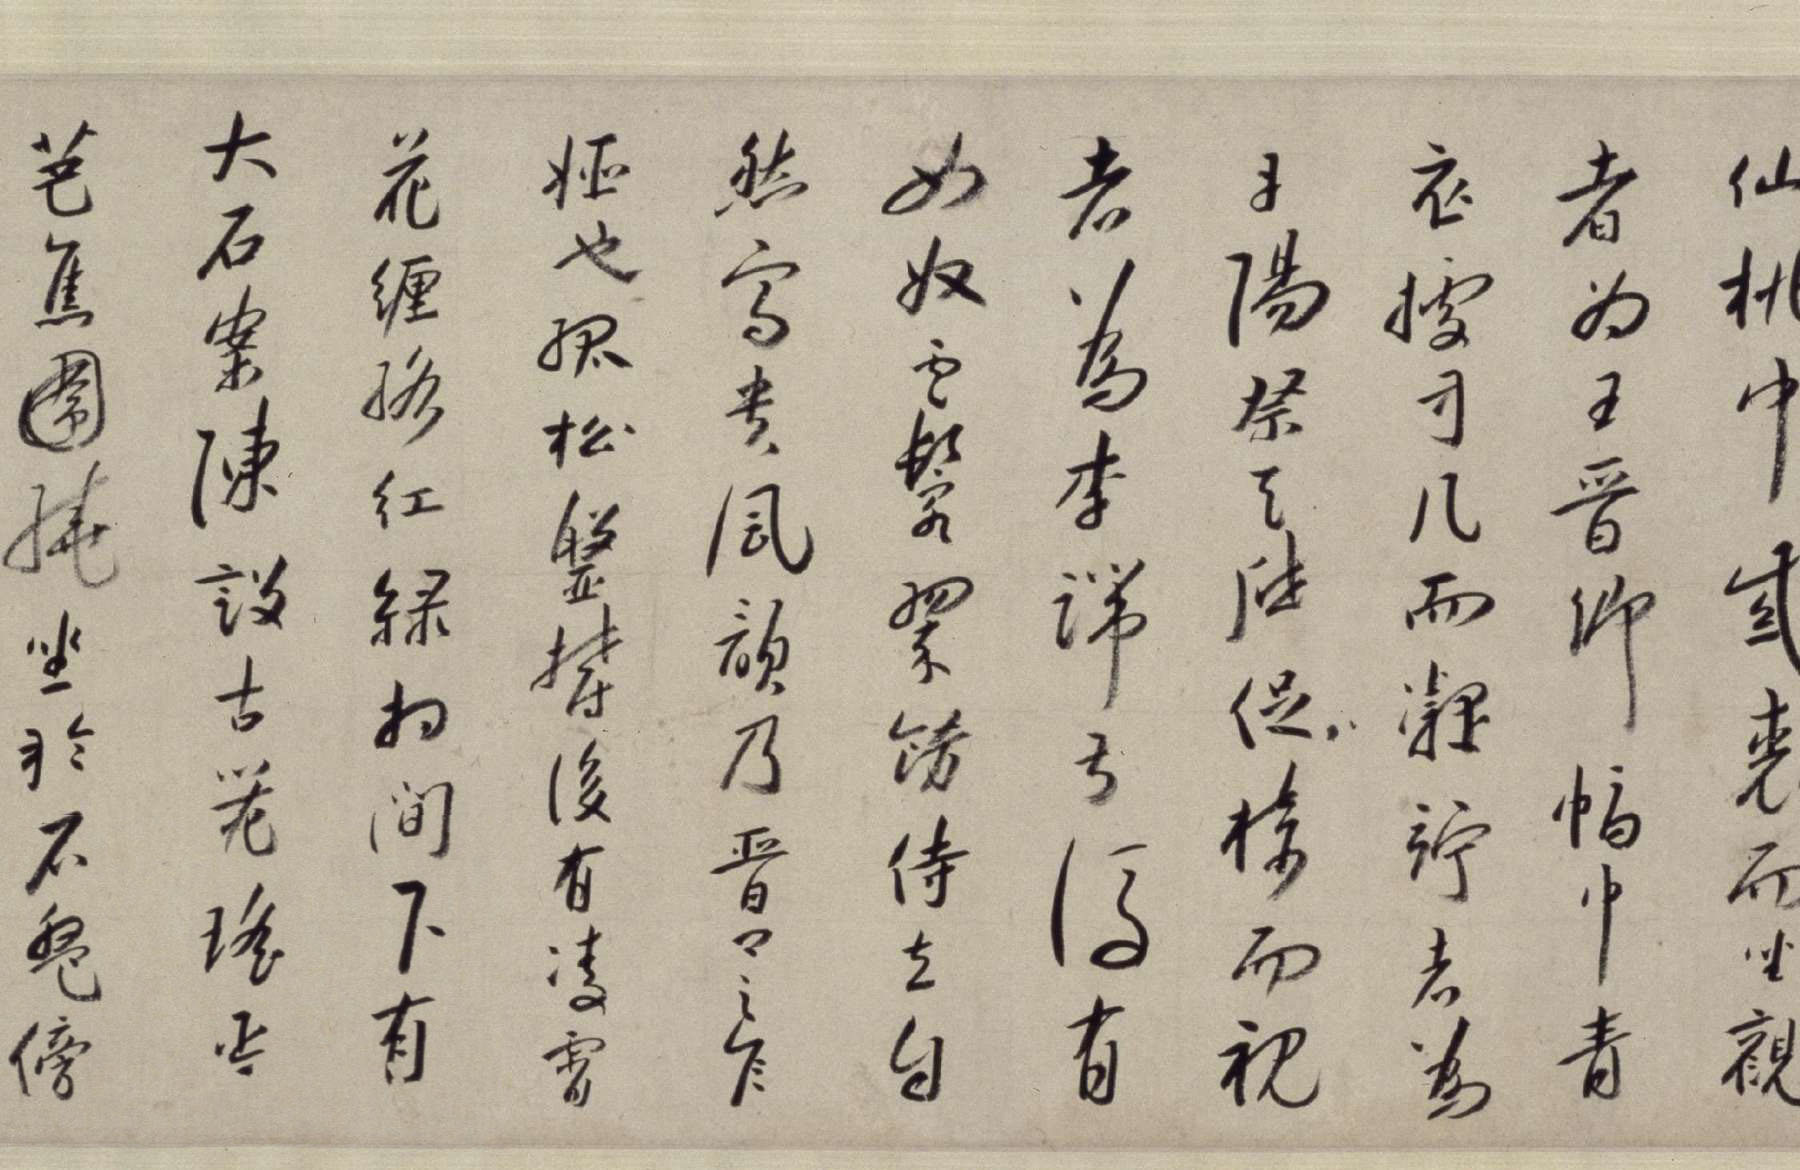 仙桃巾紫裘而坐觀
者为王晋卿幅巾青
衣據方几而凝竚者為
丹陽蔡天啓促椅而視
者為李端叔後有
女奴雲鬟翠飾侍立自
然富貴風韻乃晋卿之家
姬也孤松盤鬱後有凌霄
花纏絡紅綠相間下有
大石案陳設古器瑤琴
芭蕉圍繞坐於石盤傍